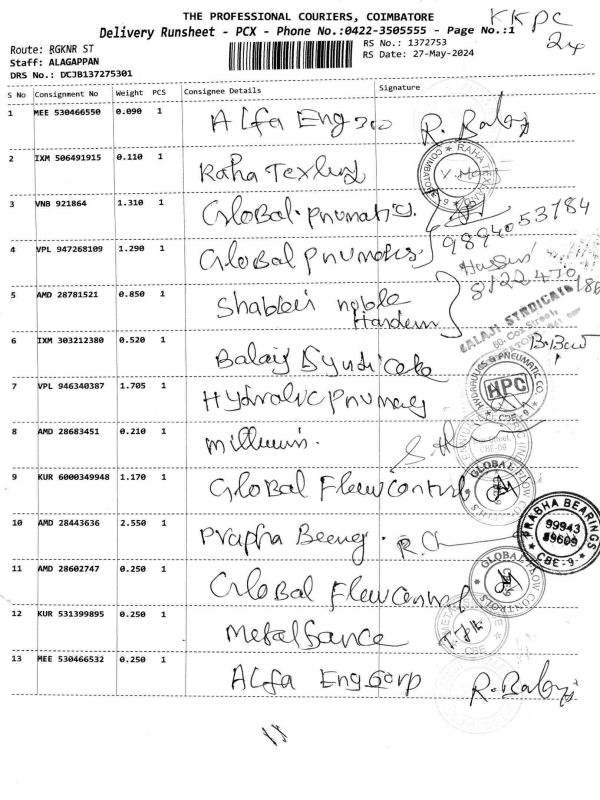 THE PROFESSIONAL COURIERS, COIMBATORE
KKPC
Delivery Runsheet - PCX - Phone No.:0422-3505555 - Page No.:1
24
Route: RGKNR ST
RS No.: 1372753
Staff: ALAGAPPAN
RS Date: 27-May-2024
DRS No.: DCJB137275301
S No Consignment No Weight PCS Consignee Details Signature
1 MEE 530466550 0.090 1 Alfa Eng R. Balaji
2 IXM 506491915 0.110 1 Raha
COIMBATORE * RAHA
3 VNB 921864 1.310 1 Global pnumatic
9894053784
4 VPL 947268109 1.290 1 Global
8122470186
5 AMD 28781521 0.850 1 noble
BALAJI SYNDICATE
6 IXM 303212380 0.520 1 Balaji Syndicate
7 VPL 946340387 1.705 1
HYDRAULICS & PNEUMATIC CO.
HPC
CBE-9
8 AMD 28683451 0.210 1
CBE-09
9 KUR 6000349948 1.170 1 Global Flow Control
GLOBAL FLOW CONTROLS
10 AMD 28443636 2.550 1 Prapha
PRABHA BEARINGS
99943
59609
CBE-9
11 AMD 28602747 0.250 1 Global Flow Control
GLOBAL FLOW CONTROLS
12 KUR 531399895 0.250 1
CBE
13 MEE 530466532 0.250 1 Alfa Eng Corp R. Balaji